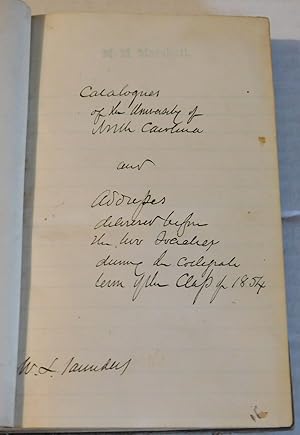 Catalogues
of the University of
North Carolina
and
Addresses
delivered before
the two Societies
during the collegiate
term of the Class of 1854
W. L. Saunders